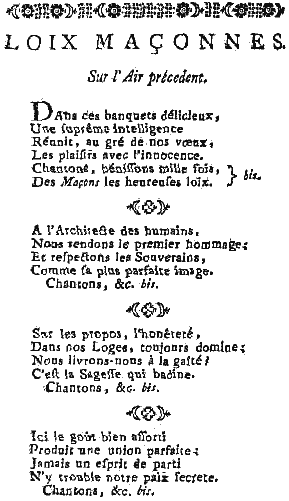 LOIX MAÇONNES.
Sur l'Air précedent.
Dans ces banquets délicieux,
Une suprême intelligence
Réunit, au gré de nos vœux,
Les plaisirs avec l'innocence.
Chantons, bénissons mille fois,
Des Maçons les heureuses loix. } bis.
A l'Architecte des humains,
Nous rendons le premier hommage;
Et respectons les Souverains,
Comme sa plus parfaite image.
Chantons, &c. bis.
Sur les propos, l'honêteté,
Dans nos Loges, toujours domine;
Nous livrons-nous à la gaîté?
C'est la Sagesse qui badine.
Chantons, &c. bis.
Ici le goût bien assorti
Produit une union parfaite;
Jamais un esprit de parti
N'y trouble notre paix secrete.
Chantons, &c. bis.